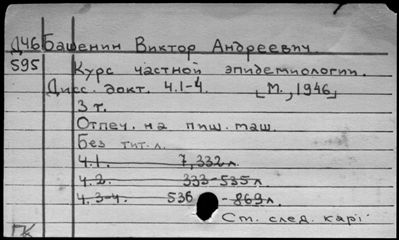 Д46 Башенин Виктор Андреевич.
595 Курс частной эпидемиологии.
Дисс. докт. ч.1-4. [М., 1946]
3 т.
Отпеч. на пиш. маш.
Без тит. л.
ч.1. 7,332 л.
ч.2. 333-535 л.
ч.3-4. 536 - 869 л.
См. след. карт.
ГК